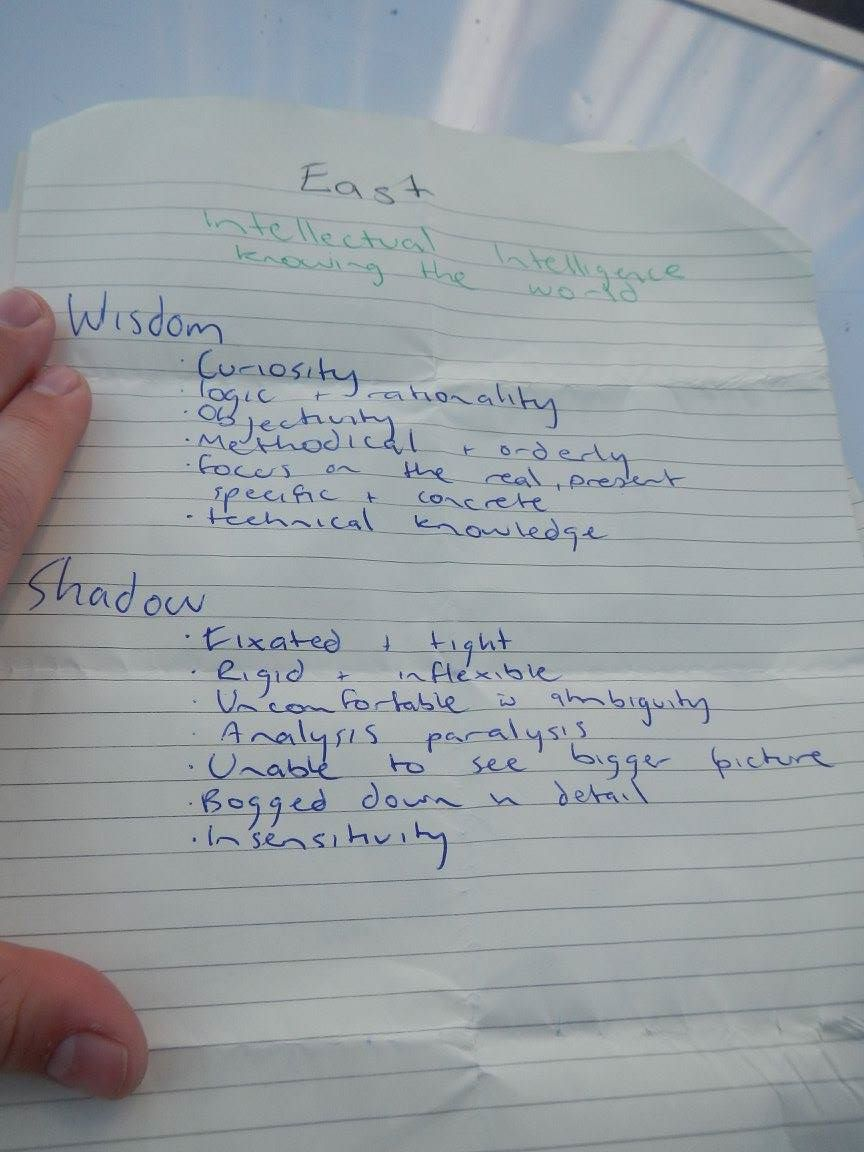 East
Intellectual Intelligence
knowing the world
Wisdom
· Curiosity
· logic + rationality
· Objectivity
· Methodical + orderly
· focus on the real, present
specific + concrete
· technical knowledge
Shadow
· Fixated + tight
· Rigid + inflexible
· Uncomfortable w ambiguity
· Analysis paralysis
· Unable to see bigger picture
· Bogged down in detail
· Insensitivity